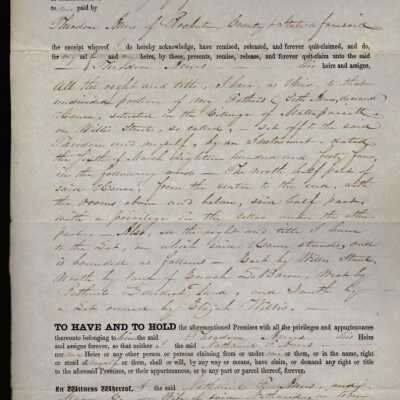 to me paid by
Theodore Ames of Rochester County & State aforesaid
the receipt whereof I do hereby acknowledge, have remised, released, and forever quit-claimed, and do,
for my self & my heirs, by these, presents, remise, release, and forever quit-claim unto the said
Theodore Ames his heirs and assigns,
All the right and title, I have, as heir, to that
undivided portion of my Father's Seth Ames, deceased
House, situated in the Village of Mattapoisett
on Willis Street, so called, - Set off to the said
Theodore and myself, by an Instrument, dated
the first of March eighteen hundred and forty four,
in the following words - The North half part of
said House, from the center to the end, with
the rooms above and below, said half part,
with a privilege in the cellar under the other
part. - Also, all the right and title I have
to the Lot, on which said House stands, and
is bounded as follows - East by Willis Street,
North by land of Enoch LeBaron, West by
land, and South by
a Lot owned by Elijah Willis. -
TO HAVE AND TO HOLD the aforementioned Premises with all the privileges and appurtenances
thereunto belonging to him the said Theodore Ames his Heirs
and assigns forever, so that neither I the said Ames
nor my Heirs or any other person or persons claiming from or under me or them, or in the name, right
or stead of myself or them, shall or will, by any ways or means, have, claim, or demand any right or title
to the aforesaid Premises, or their appurtenances, or to any part or parcel thereof, forever.
In Witness Whereof, I the said Ames, and